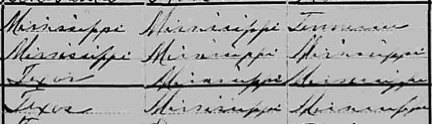 Mississippi Mississippi Tennessee
Mississippi Mississippi Mississippi
Texas Mississippi Mississippi
Texas Mississippi Mississippi